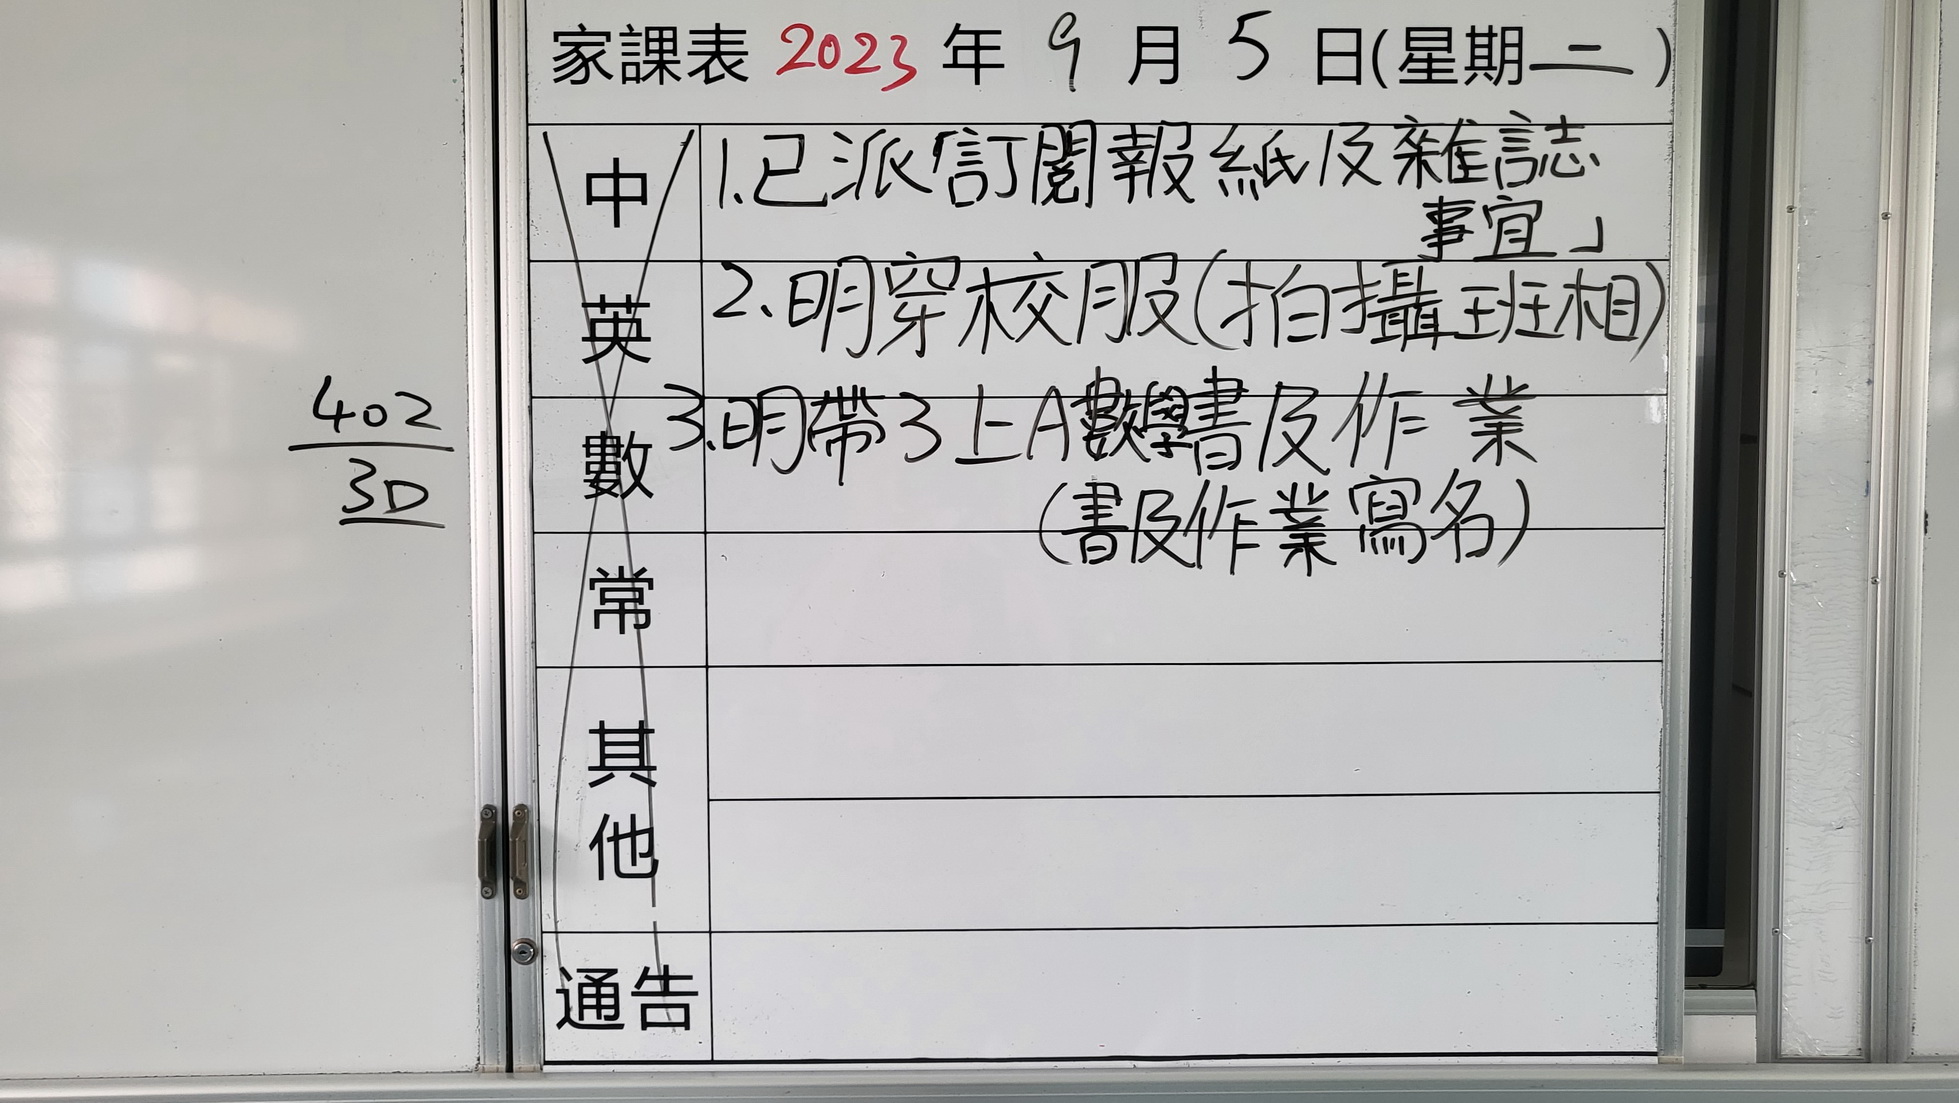 家課表 2023 年 9 月 5 日(星期二)
中
1.已派「訂閱報紙及雜誌
事宜」
英
2.明穿校服(拍攝班相)
數
3.明帶3上A數學書及作業
(書及作業寫名)
常
其他
通告
402
3D